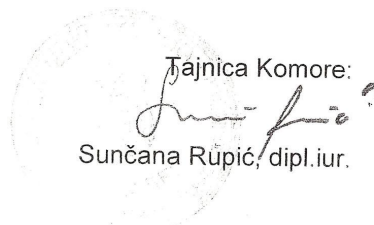 Tajnica Komore:
Sunčana Rupić, dipl.iur.